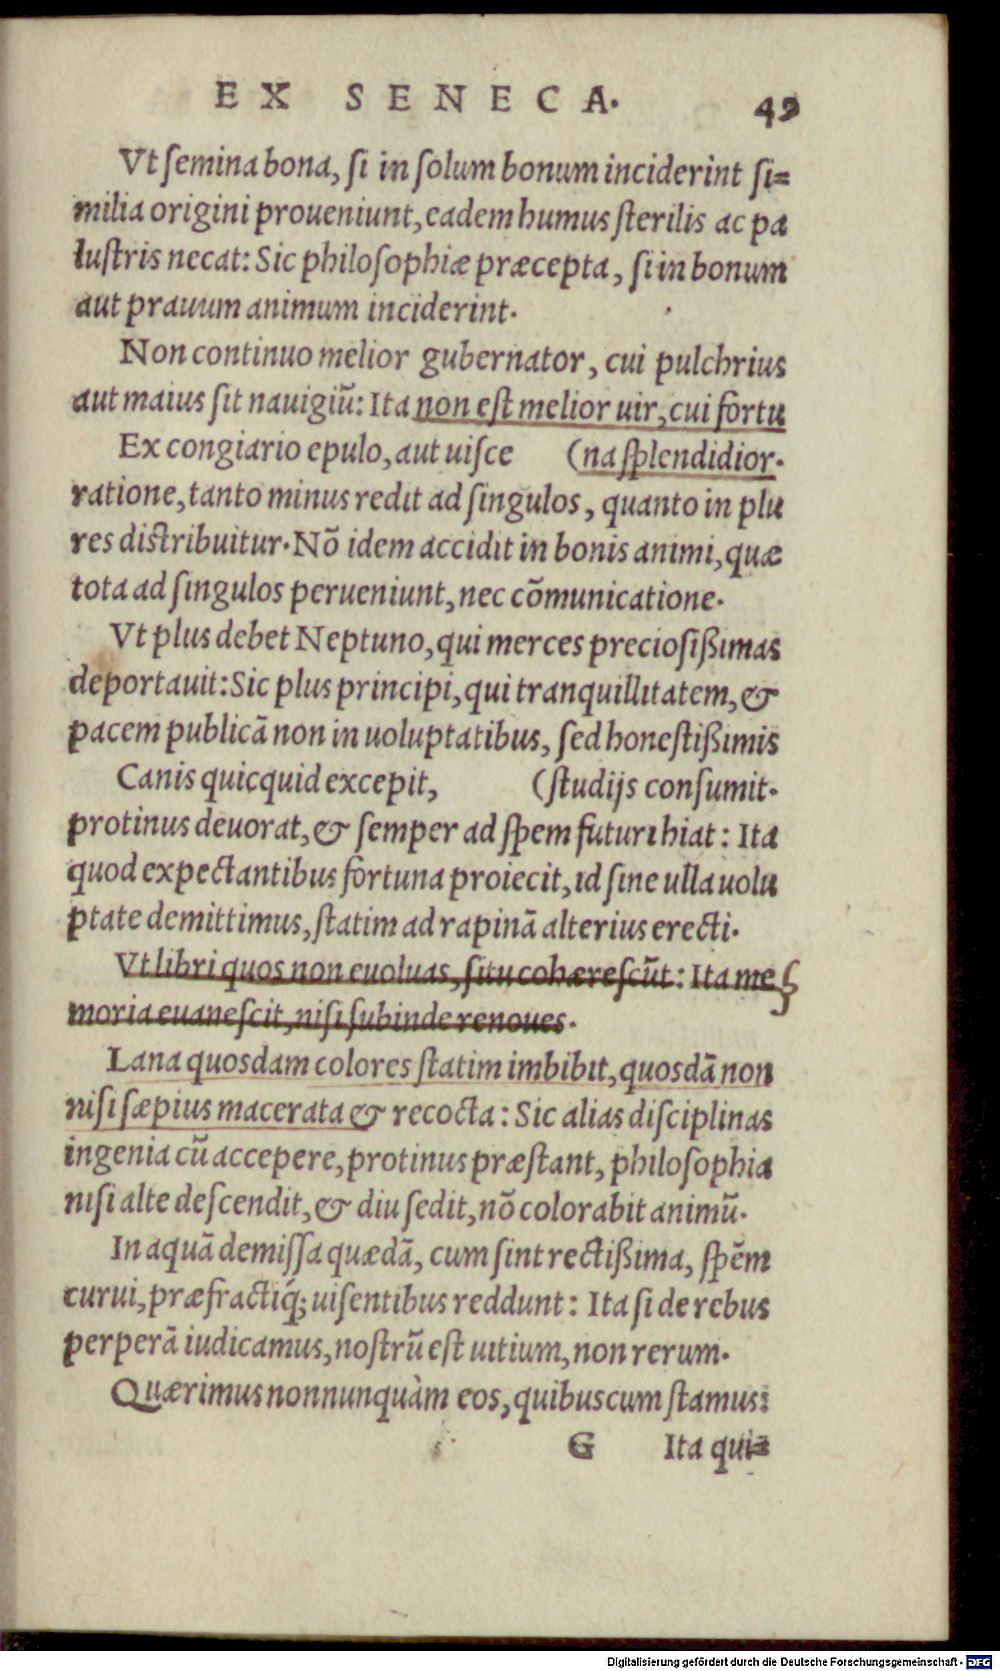 EX SENECA. 49
Vt ſemina bona, ſi in ſolum bonum inciderint ſi=
milia origini proueniunt, eadem humus ſterilis ac pa
luſtris necat: Sic philoſophiæ præcepta, ſi in bonum
aut prauum animum inciderint.
Non continuo melior gubernator, cui pulchrius
aut maius ſit nauigiũ: Ita non eſt melior uir, cui fortu
Ex congiario epulo, aut uiſce (na ſplendidior.
ratione, tanto minus redit ad ſingulos, quanto in plu
res diſtribuitur. Nõ idem accidit in bonis animi, quæ
tota ad ſingulos perueniunt, nec cõmunicatione.
Vt plus debet Neptuno, qui merces precioſißimas
deportauit: Sic plus principi, qui tranquillitatem, &
pacem publicã non in uoluptatibus, ſed honeſtißimis
Canis quicquid excepit, (ſtudijs conſumit.
protinus deuorat, & ſemper ad ſpem futuri hiat: Ita
quod expectantibus fortuna proiecit, id ſine ulla uolu
ptate demittimus, ſtatim ad rapinã alterius erecti.
Vt libri quos non euoluas, ſitu cohæreſcũt: Ita me
moria euaneſcit, niſi ſubinde renoues.
Lana quosdam colores ſtatim imbibit, quosdã non
niſi ſæpius macerata & recocta: Sic alias diſciplinas
ingenia cũ accepere, protinus præſtant, philoſophia
niſi alte deſcendit, & diu ſedit, nõ colorabit animũ.
In aquã demiſſa quædã, cum ſint rectißima, ſpẽm
curui, præfractiq́; uiſentibus reddunt: Ita ſi de rebus
perperã iudicamus, noſtrũ eſt uitium, non rerum.
Quærimus nonnunquàm eos, quibuscum ſtamus:
G Ita qui=
Digitalisierung gefördert durch die Deutsche Forschungsgemeinschaft - DFG